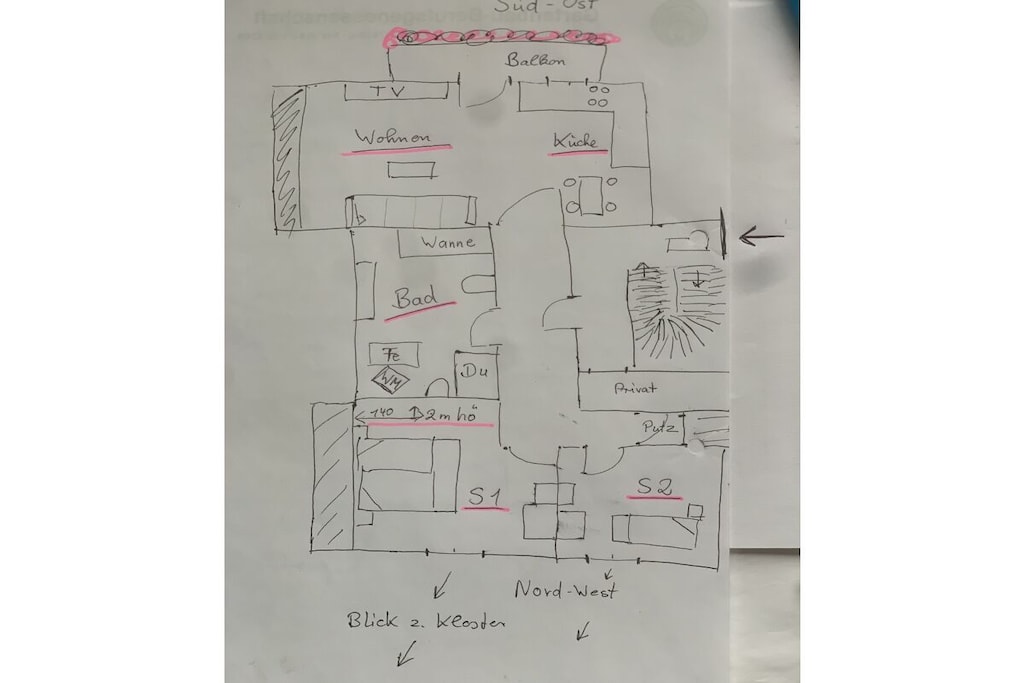 Süd-Ost
Balkon
TV
Wohnen
Küche
Wanne
Bad
Fe
WM
Du
Privat
140 2m hö
Putz
S1
S2
Nord-West
Blick z. Kloster